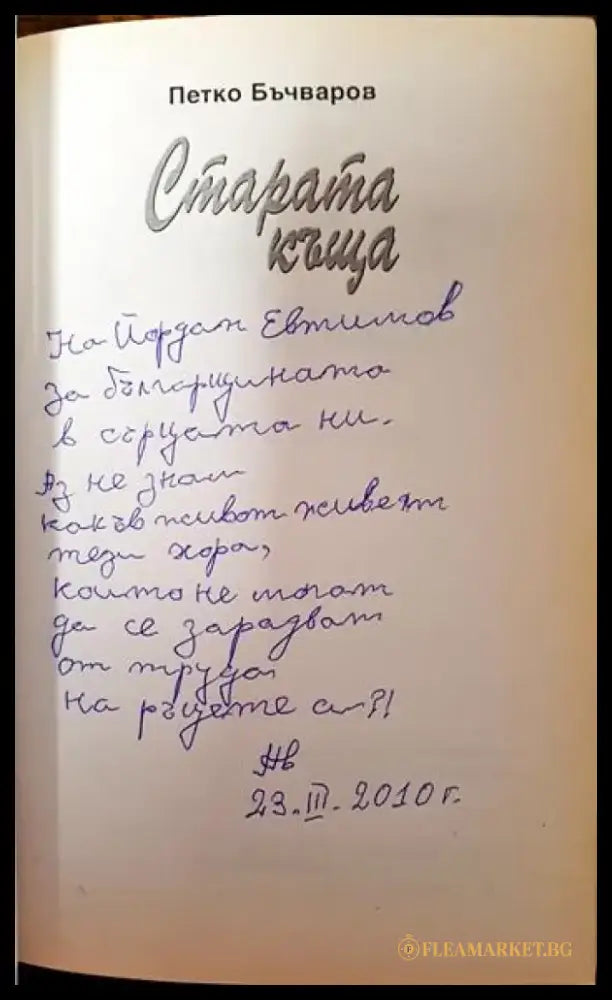 Петко Бъчваров
Старата
къща
На Йордан Евтимов
За българщината
в сърцата ни.
Аз не знам
какъв живот живеят
тези хора,
които не могат
да се зарадват
от труда
на ръцете си?!
23.III.2010 г.
FLEAMARKET.BG